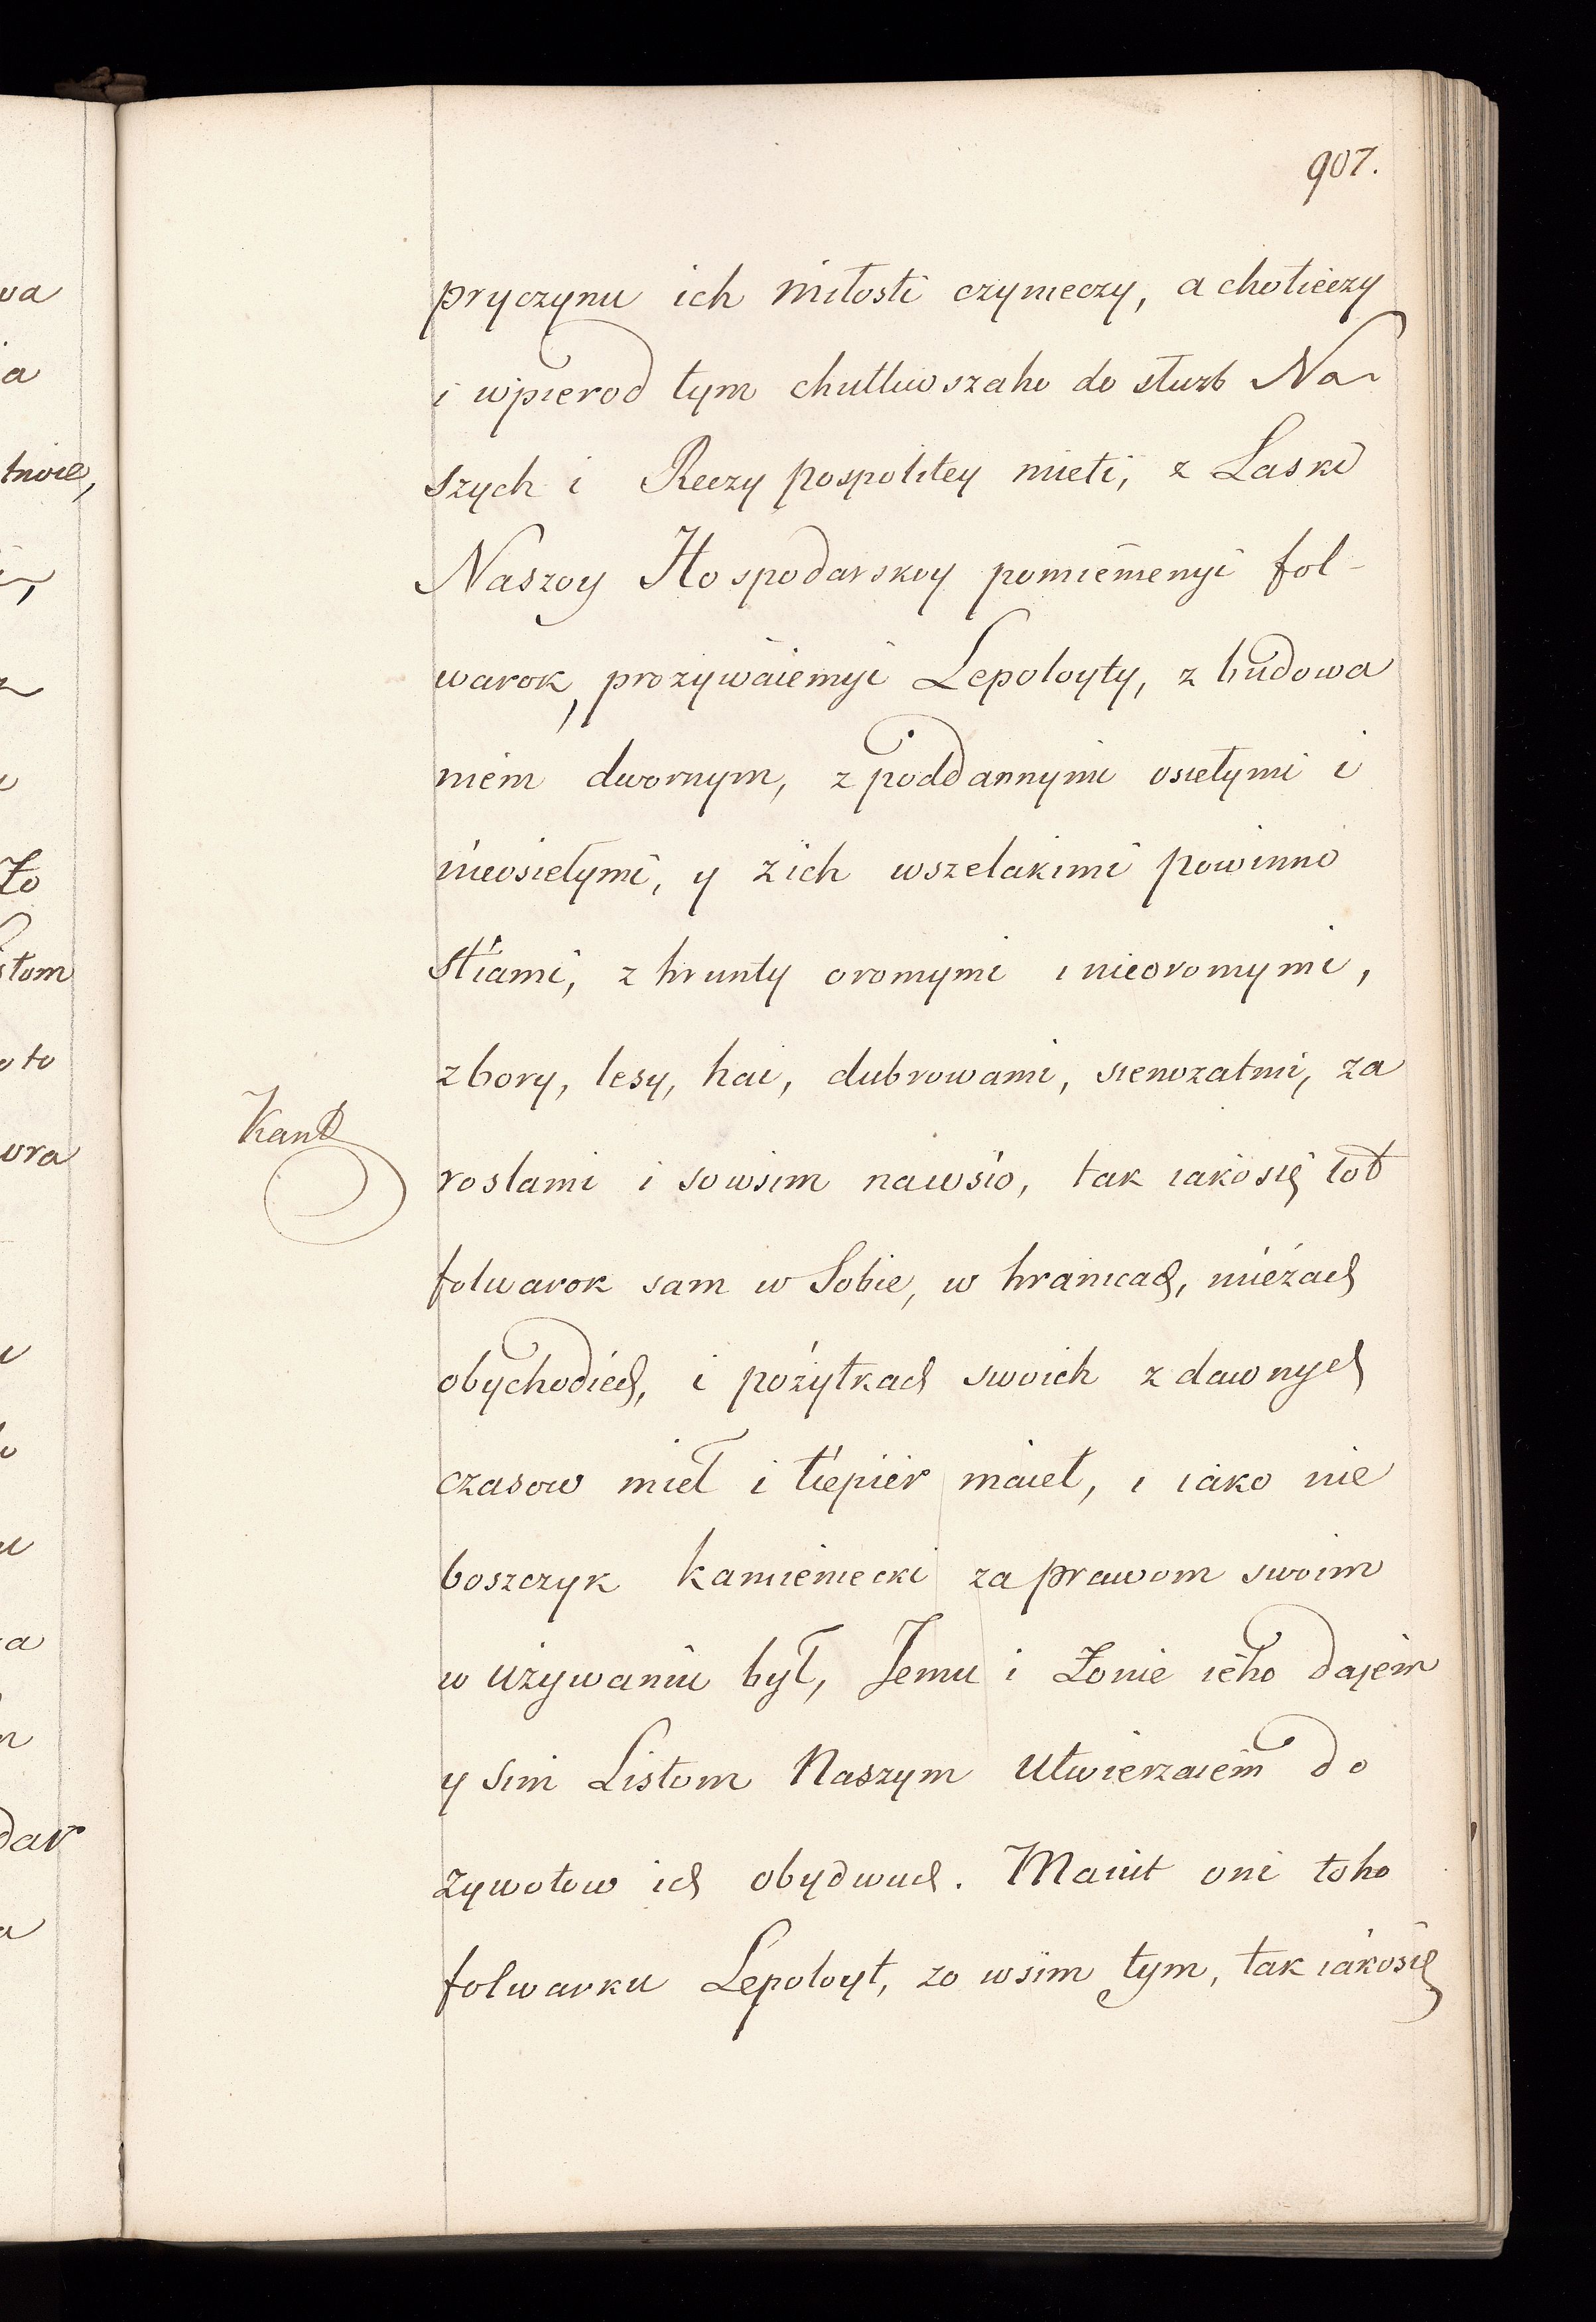 907.
pryczynu ich miłosti czynieczy, a chotieczy
i wpierod tym chutliwszaho do służb Na-
szych i Reczy pospolitey mieti, z Laski
Naszoy Hospodarskoy pomienienyi fol-
warok, prozywaiemyi Lepoloyty, z budowa
niem dwornym, z poddannymi osiełymi i
nieosiełymi, y z ich wszelakimi powinno
stiami, z hrunty oromymi i nieoromymi,
z bory, lesy, hai, dubrowami, sienozatmi, za
roslami i sowsim nawsio, tak iako się tot
folwarok sam w Sobie, w hranicach, mieżach
obychodiech, i pożytkach swoich z dawnych
czasow miel i tiepier maiet, i iako nie
boszczyk kamieniecki za prawom swoim
w używaniu był, Jemu i Żonie ieho dajem
y sim Listom Naszym Utwierzaiem do
żywotow ich obydwuch. Maiut oni toho
folwarku Lepoloyt, zo wsim tym, tak iako się